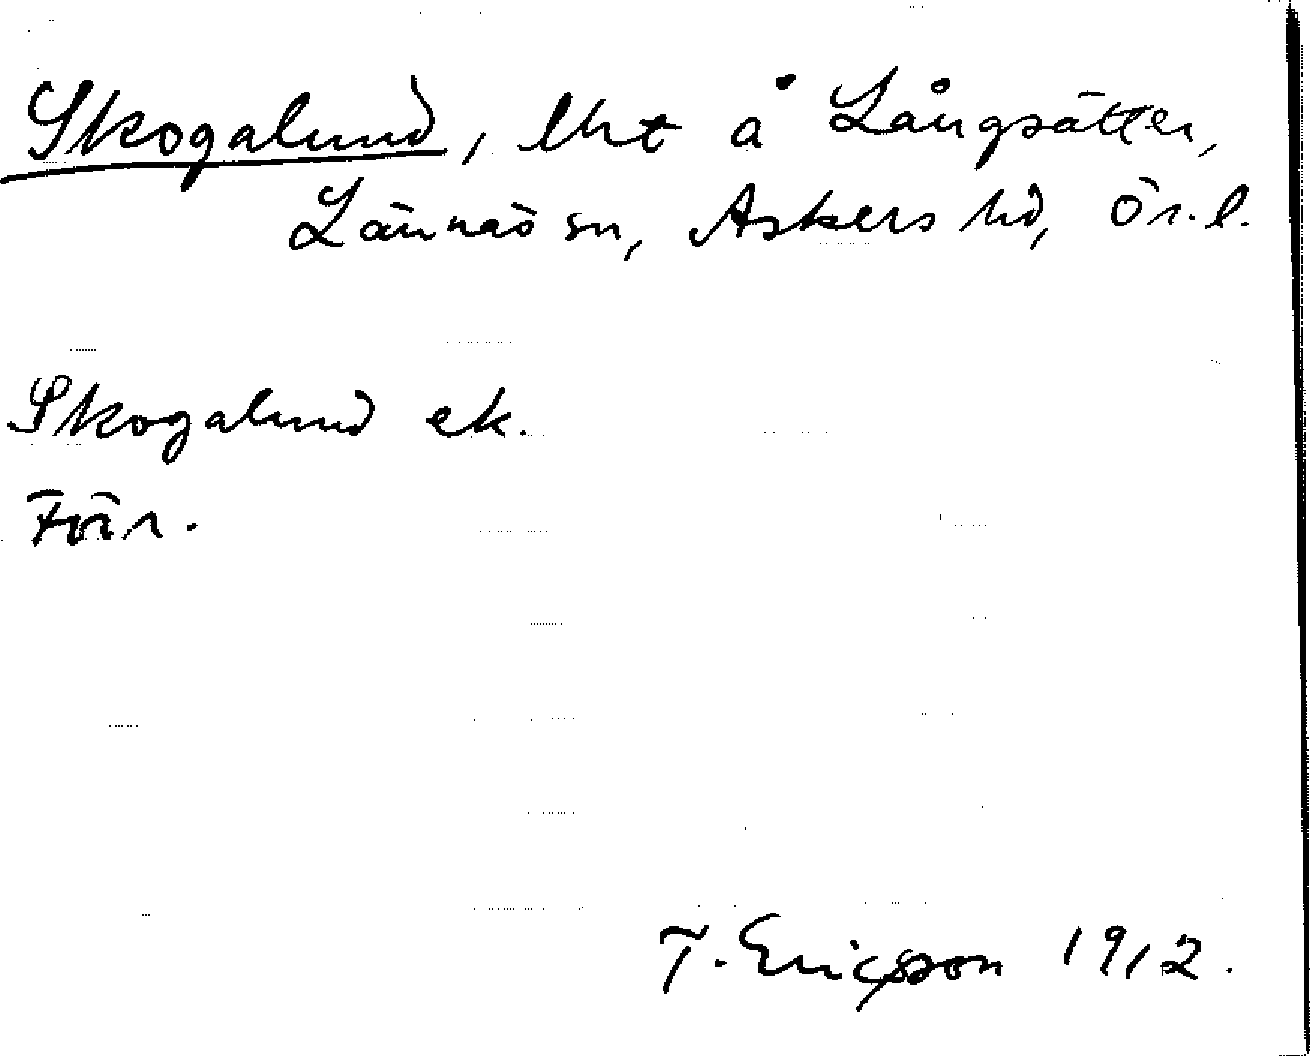 Skogalund, lht å Långsätter,
Lännäs sn, Askers hd, Ör. l.
Skogalund ek.
Förr.
T. Ericsson 1912.